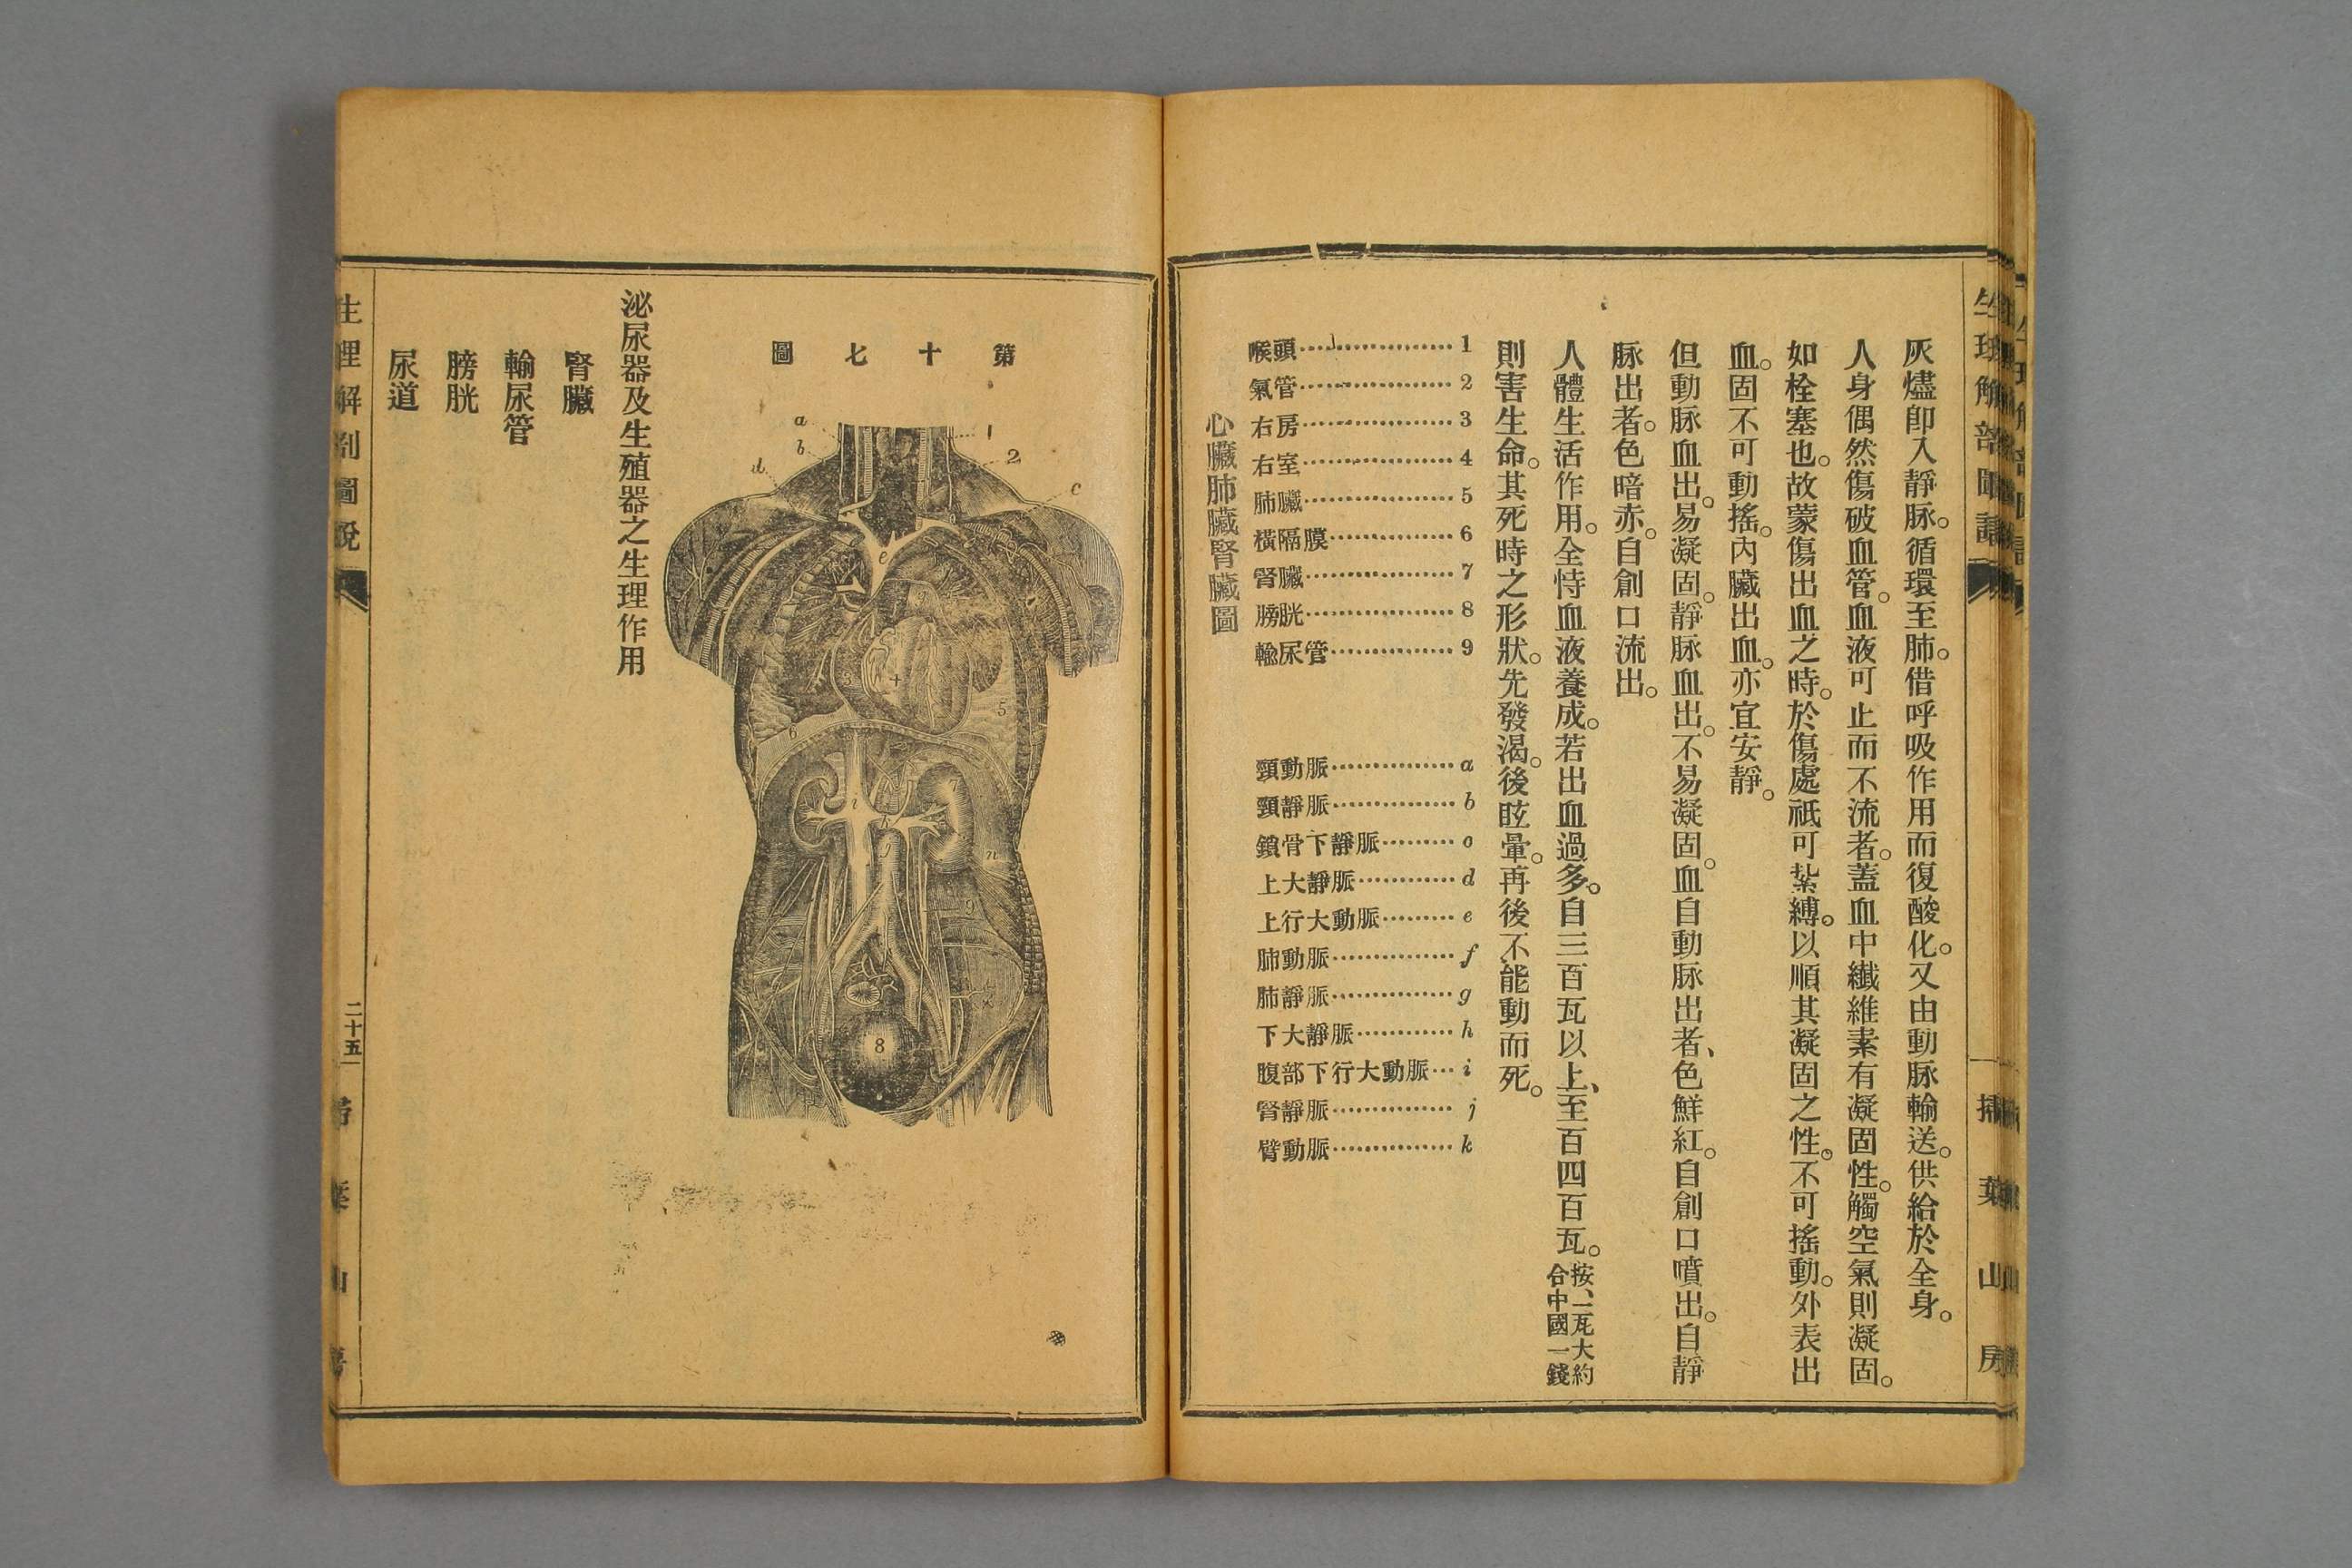 灰燼卽入靜脉。循環至肺。借呼吸作用而復酸化。又由動脉輸送。供給於全身。
人身偶然傷破血管。血液可止而不流者。蓋血中纖維素有凝固性。觸空氣則凝固。
如栓塞也。故蒙傷出血之時。於傷處祇可紮縛。以順其凝固之性。不可搖動。外表出
血。固不可動搖。內臟出血。亦宜安靜。
但動脉血出。易凝固。靜脉血出。不易凝固。血自動脉出者、色鮮紅。自創口噴出。自靜
脉出者。色暗赤。自創口流出。
人體生活作用。全恃血液養成。若出血過多。自三百瓦以上、至百四百瓦。按、一瓦大約合中國一錢
則害生命。其死時之形狀。先發渴。後眩暈。再後不能動而死。
喉頭……………1
氣管……………2
右房……………3
右室……………4
肺臟……………5
橫隔膜…………6
腎臟……………7
膀胱……………8
輸尿管…………9
頸動脈…………a
頸靜脈…………b
鎖骨下靜脈……c
上大靜脈………d
上行大動脈……e
肺動脈…………f
肺靜脈…………g
下大靜脈………h
腹部下行大動脈…i
腎靜脈…………j
臂動脈…………k
心臟肺臟腎臟圖
掃葉山房
第十七圖
a
b
d
1
2
c
e
3
5
6
i
h
g
n
9
8
泌尿器及生殖器之生理作用
腎臟
輸尿管
膀胱
尿道
生理解剖圖說
二十五